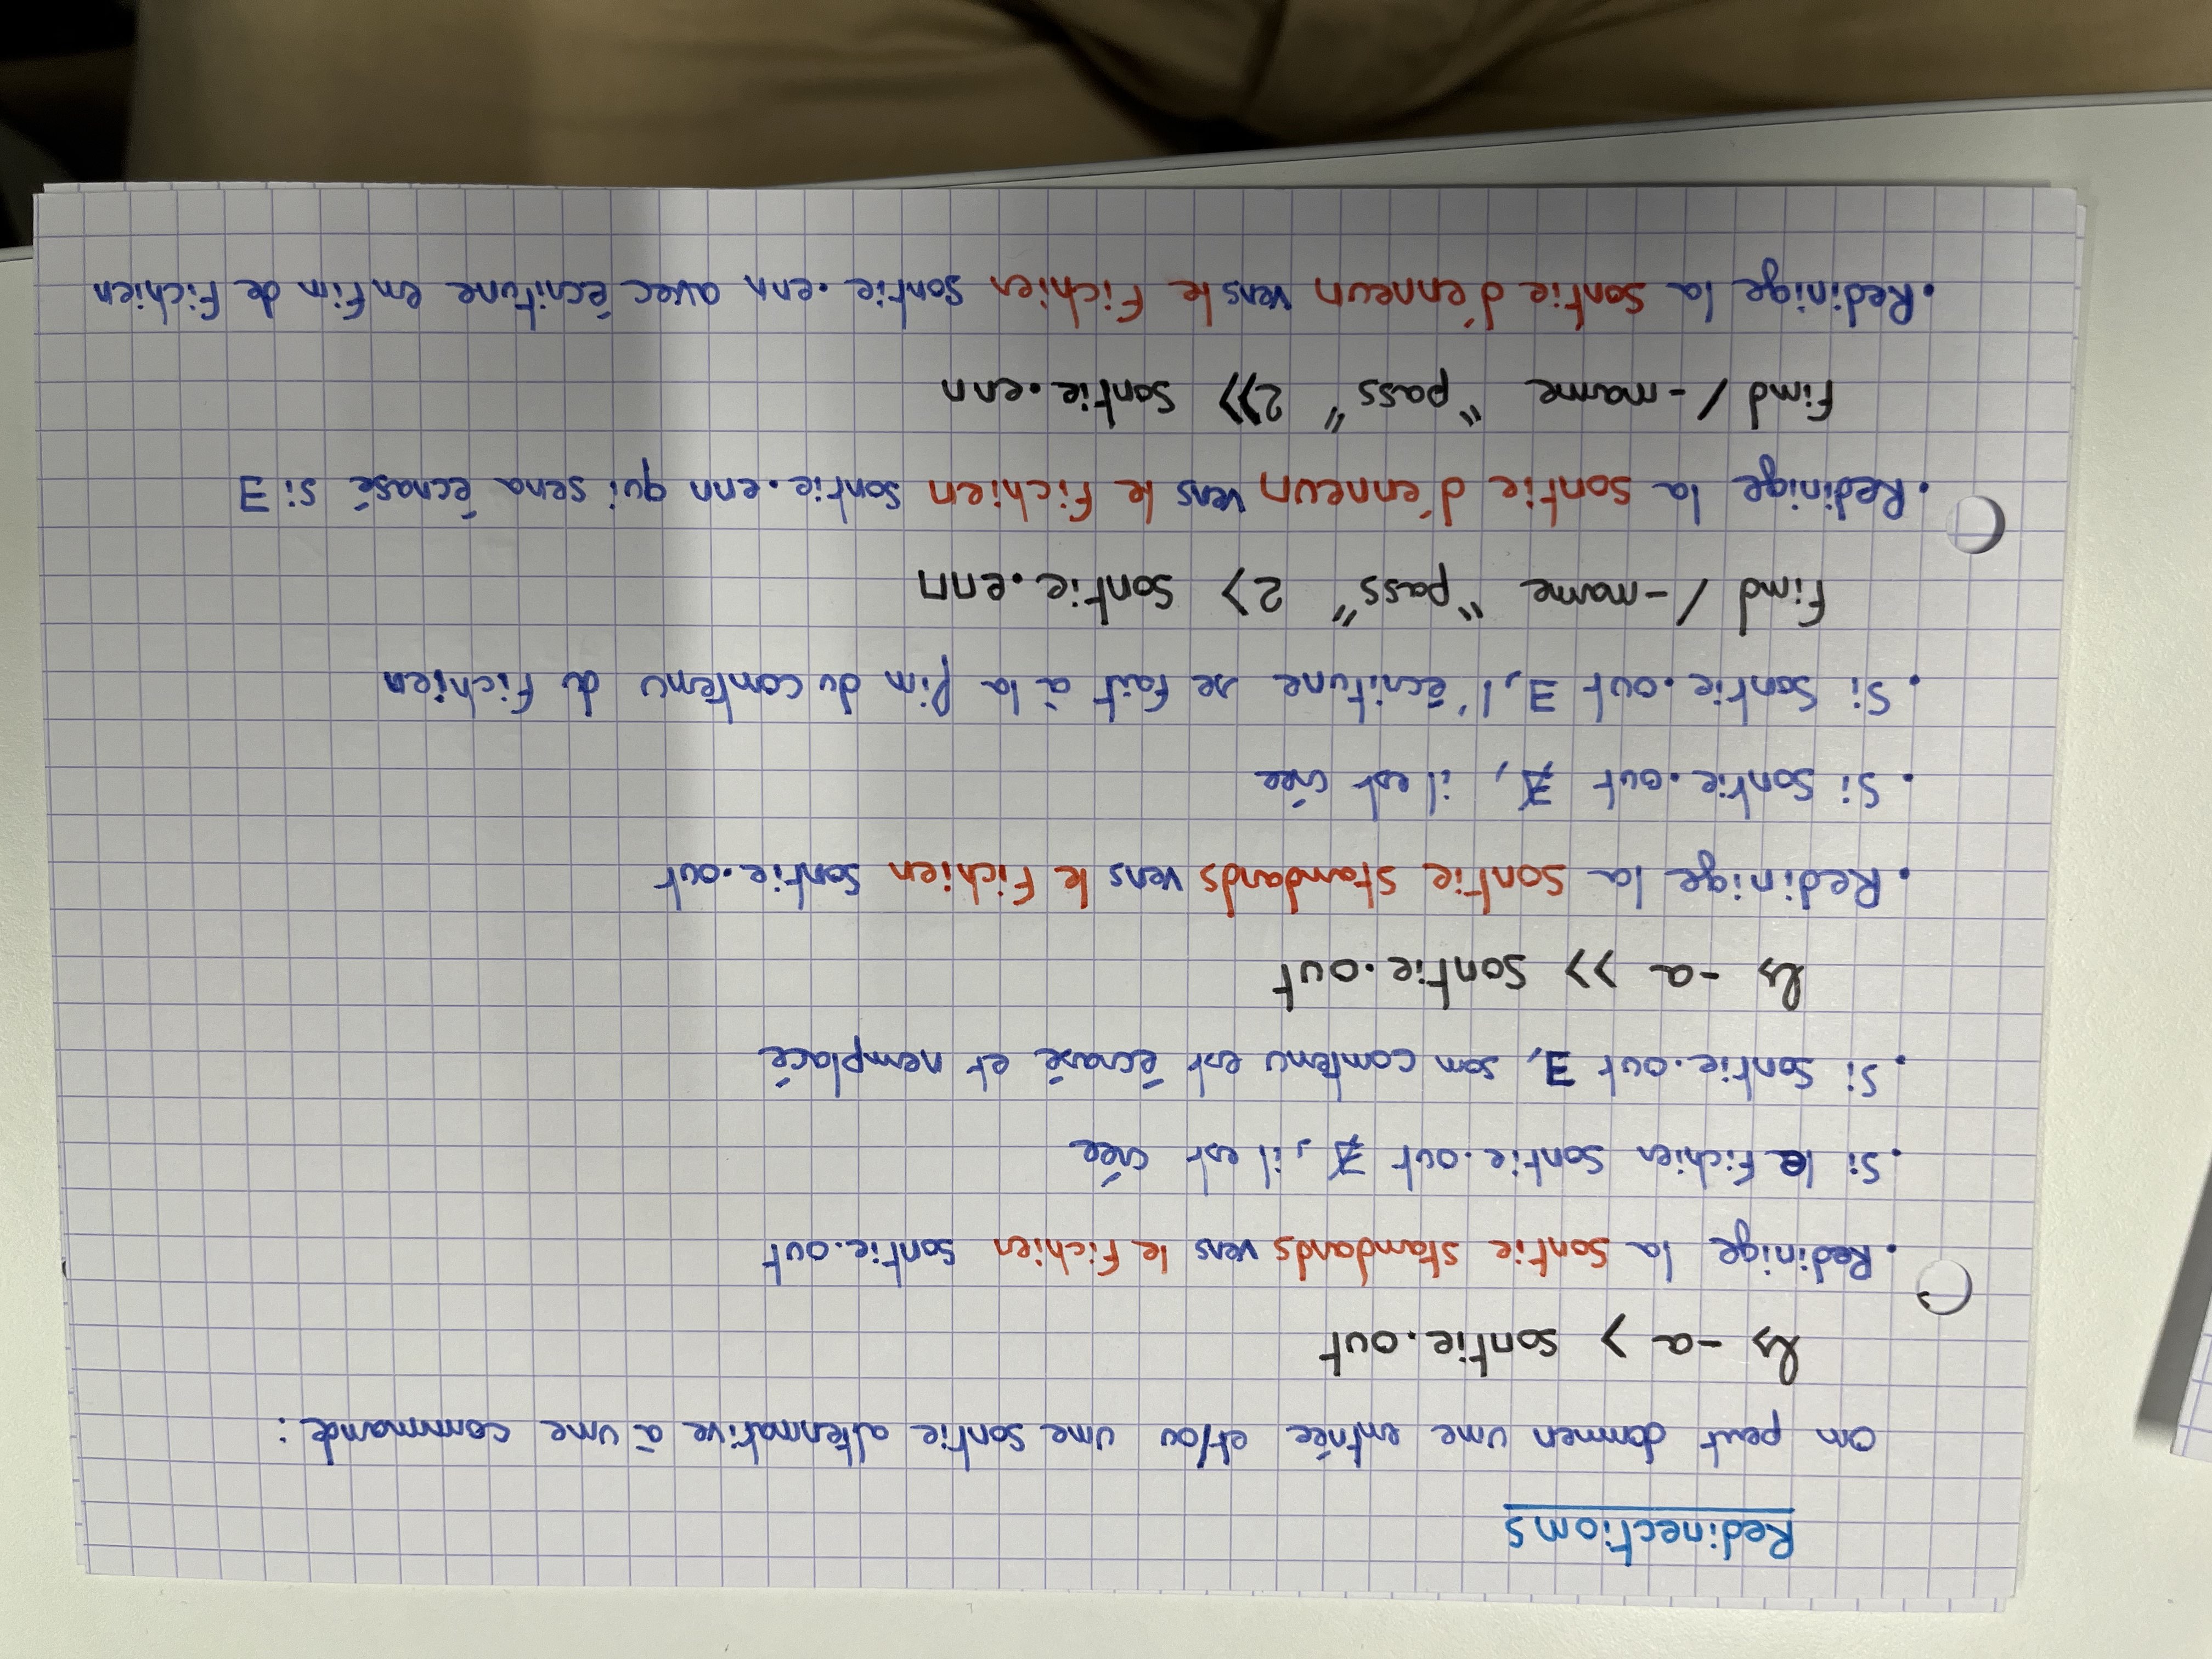 Redirections
on peut donner une entrée et/ou une sortie alternative à une commande :
ls -a > sortie.out
. Redirige la sortie standards vers le fichier sortie.out
. Si le fichier sortie.out ∄, il est crée
. Si sortie.out ∃, son contenu est écrasé et remplacé
ls -a >> sortie.out
. Redirige la sortie standards vers le fichier sortie.out
. Si sortie.out ∄, il est crée
. Si sortie.out ∃, l'écriture se fait à la fin du contenu du fichier
find / -name "pass" 2> sortie.err
. Redirige la sortie d'erreur vers le fichier sortie.err qui sera écrasé si ∃
find / -name "pass" 2>> sortie.err
. Redirige la sortie d'erreur vers le fichier sortie.err avec écriture en fin de fichier